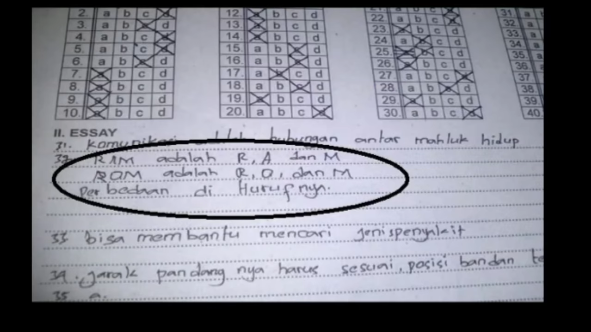 2. a b c d 12. a b c d 22. a b c d 31. a
3. a b c d 13. a b c d 23. b c d 32. a
4. a b c d 14. a b c d 24. a c d 33.
5. a b c d 15. a b d 25. c d 34.
6. a b d 16. a b d 26. b c d 35.
7. b c d 17. a c d 27. a b c 36.
8. b c d 18. a b d 28. a b d 37.
9. b c d 19. b c d 29. b c d 38.
10. b c d 20. a b c 30. a b c 39.
40.
II. ESSAY
31. komunikasi adalah hubungan antar mahluk hidup
32. RAM adalah R, A dan M
ROM adalah R, O, dan M
Perbedaan di Hurufnya.
33 bisa membantu mencari jenispenyakit
34. jarak pandang nya harus sesuai, posisi bandan
35 a.